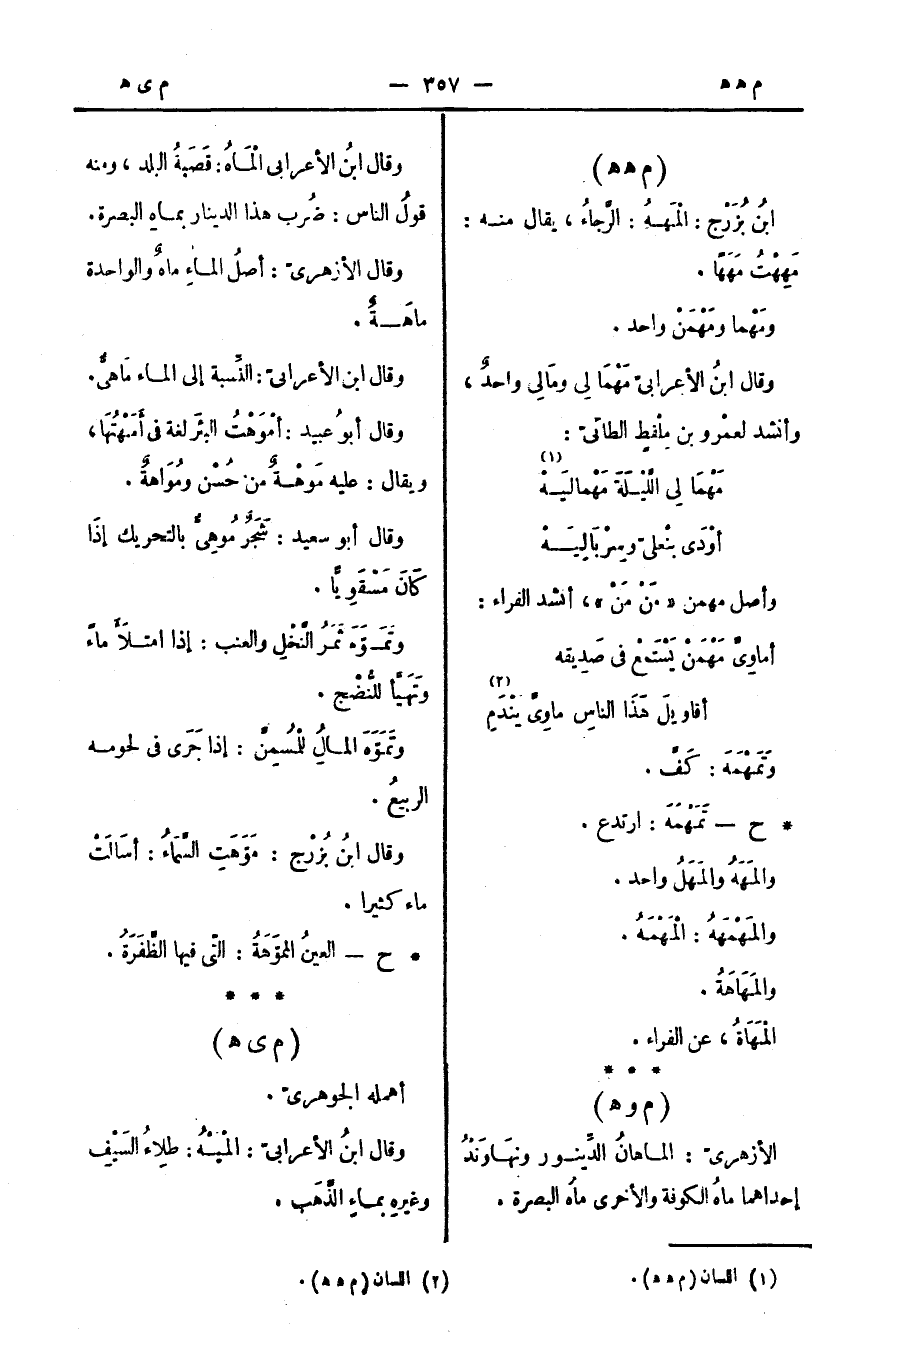 م ه ه — ٣٥٧ — م ى ه
(م ه ه)
ابنُ بُزُرْج : الْمَهَهُ : الرَّجاءُ ، يقال منه :
مَهِهْتُ مَهَهًا .
ومَهْما ومَهْمَنْ واحد .
وقال ابنُ الأعرابىّ مَهْمَا لِي ومَالِي واحدٌ ،
وأنشد لعمْرو بن مِلقطٍ الطائىّ :
مَهْمَا لِي اللَّيْلَةَ مَهْمالِيَهْ (١)
أوْدَى بنْعلىّ وسِرْبَالِيَهْ
وأصل مهمن « مَنْ مَنْ » ، أنشد الفراء :
أماوِىَّ مَهْمَنْ يَسْتَمِعْ فى صَدِيقه
أقاويلَ هَذَا الناسِ ماوِىَّ يَنْدَمِ (٢)
وتَمَهْمَهَ : كَفَّ .
* ح — تَمَهْمَهَ : ارتدع .
والمَهَهُ والمَهَلُ واحد .
والمَهْمَهُ : الْمَهْمَهُ .
والمَهَاهَةُ .
الْمَهَاةُ ، عن الفراء .
* * *
(م و ه)
الأزهرىّ : الماهانُ الدِّينور ونهَاوَنْدُ
إحداهما ماهُ الكوفة والأخرى ماهُ البصرة .
وقال ابنُ الأعرابى الْمَاهُ : قَصَبَةُ البلد ، ومنه
قولُ الناس : ضُرب هذا الدينار بماهِ البصرة .
وقال الأزهرىّ : أصلُ الماءِ ماهٌ والواحدة
ماهَةٌ .
وقال ابن الأعرابىّ : النِّسبة إلى الماء مَاهىٌّ .
وقال أبو عبيد : أمْوَهْتُ البئرَ لغة فى أَمَهْتُهَا ،
ويقال : عليه مَوْهَةٌ من حُسْن ومُوَاهةٌ .
وقال أبو سعيد : شَجَرٌ مُوهِىٌّ بالتحريك إذَا
كَانَ مَسْقَوِيًّا .
وتَمَوَّهَ ثَمَرُ النَّخْلِ والعنب : إذا امتلأَ ماءً
وتَهَيَّأ للنُّضْج .
وتَمَوَّهَ المالُ للْسُمِنَّ : إذا جَرَى فى لحومه
الربيعُ .
وقال ابنُ بُزُرْج : مَوَّهَتِ السَّماءُ : أسَالَتْ
ماء كثيرا .
* ح — العينُ المموَّهَةُ : الّتى فيها الظَّفَرَةُ .
* * *
(م ى ه)
أهمله الجوهرىّ .
وقال ابنُ الأعرابىّ : الْمَيْهُ : طِلاءُ السَّيْفِ
وغيرِهِ بماءِ الذَّهَب .
(١) اللسان (م ه ه) .
(٢) اللسان (م ه ه) .